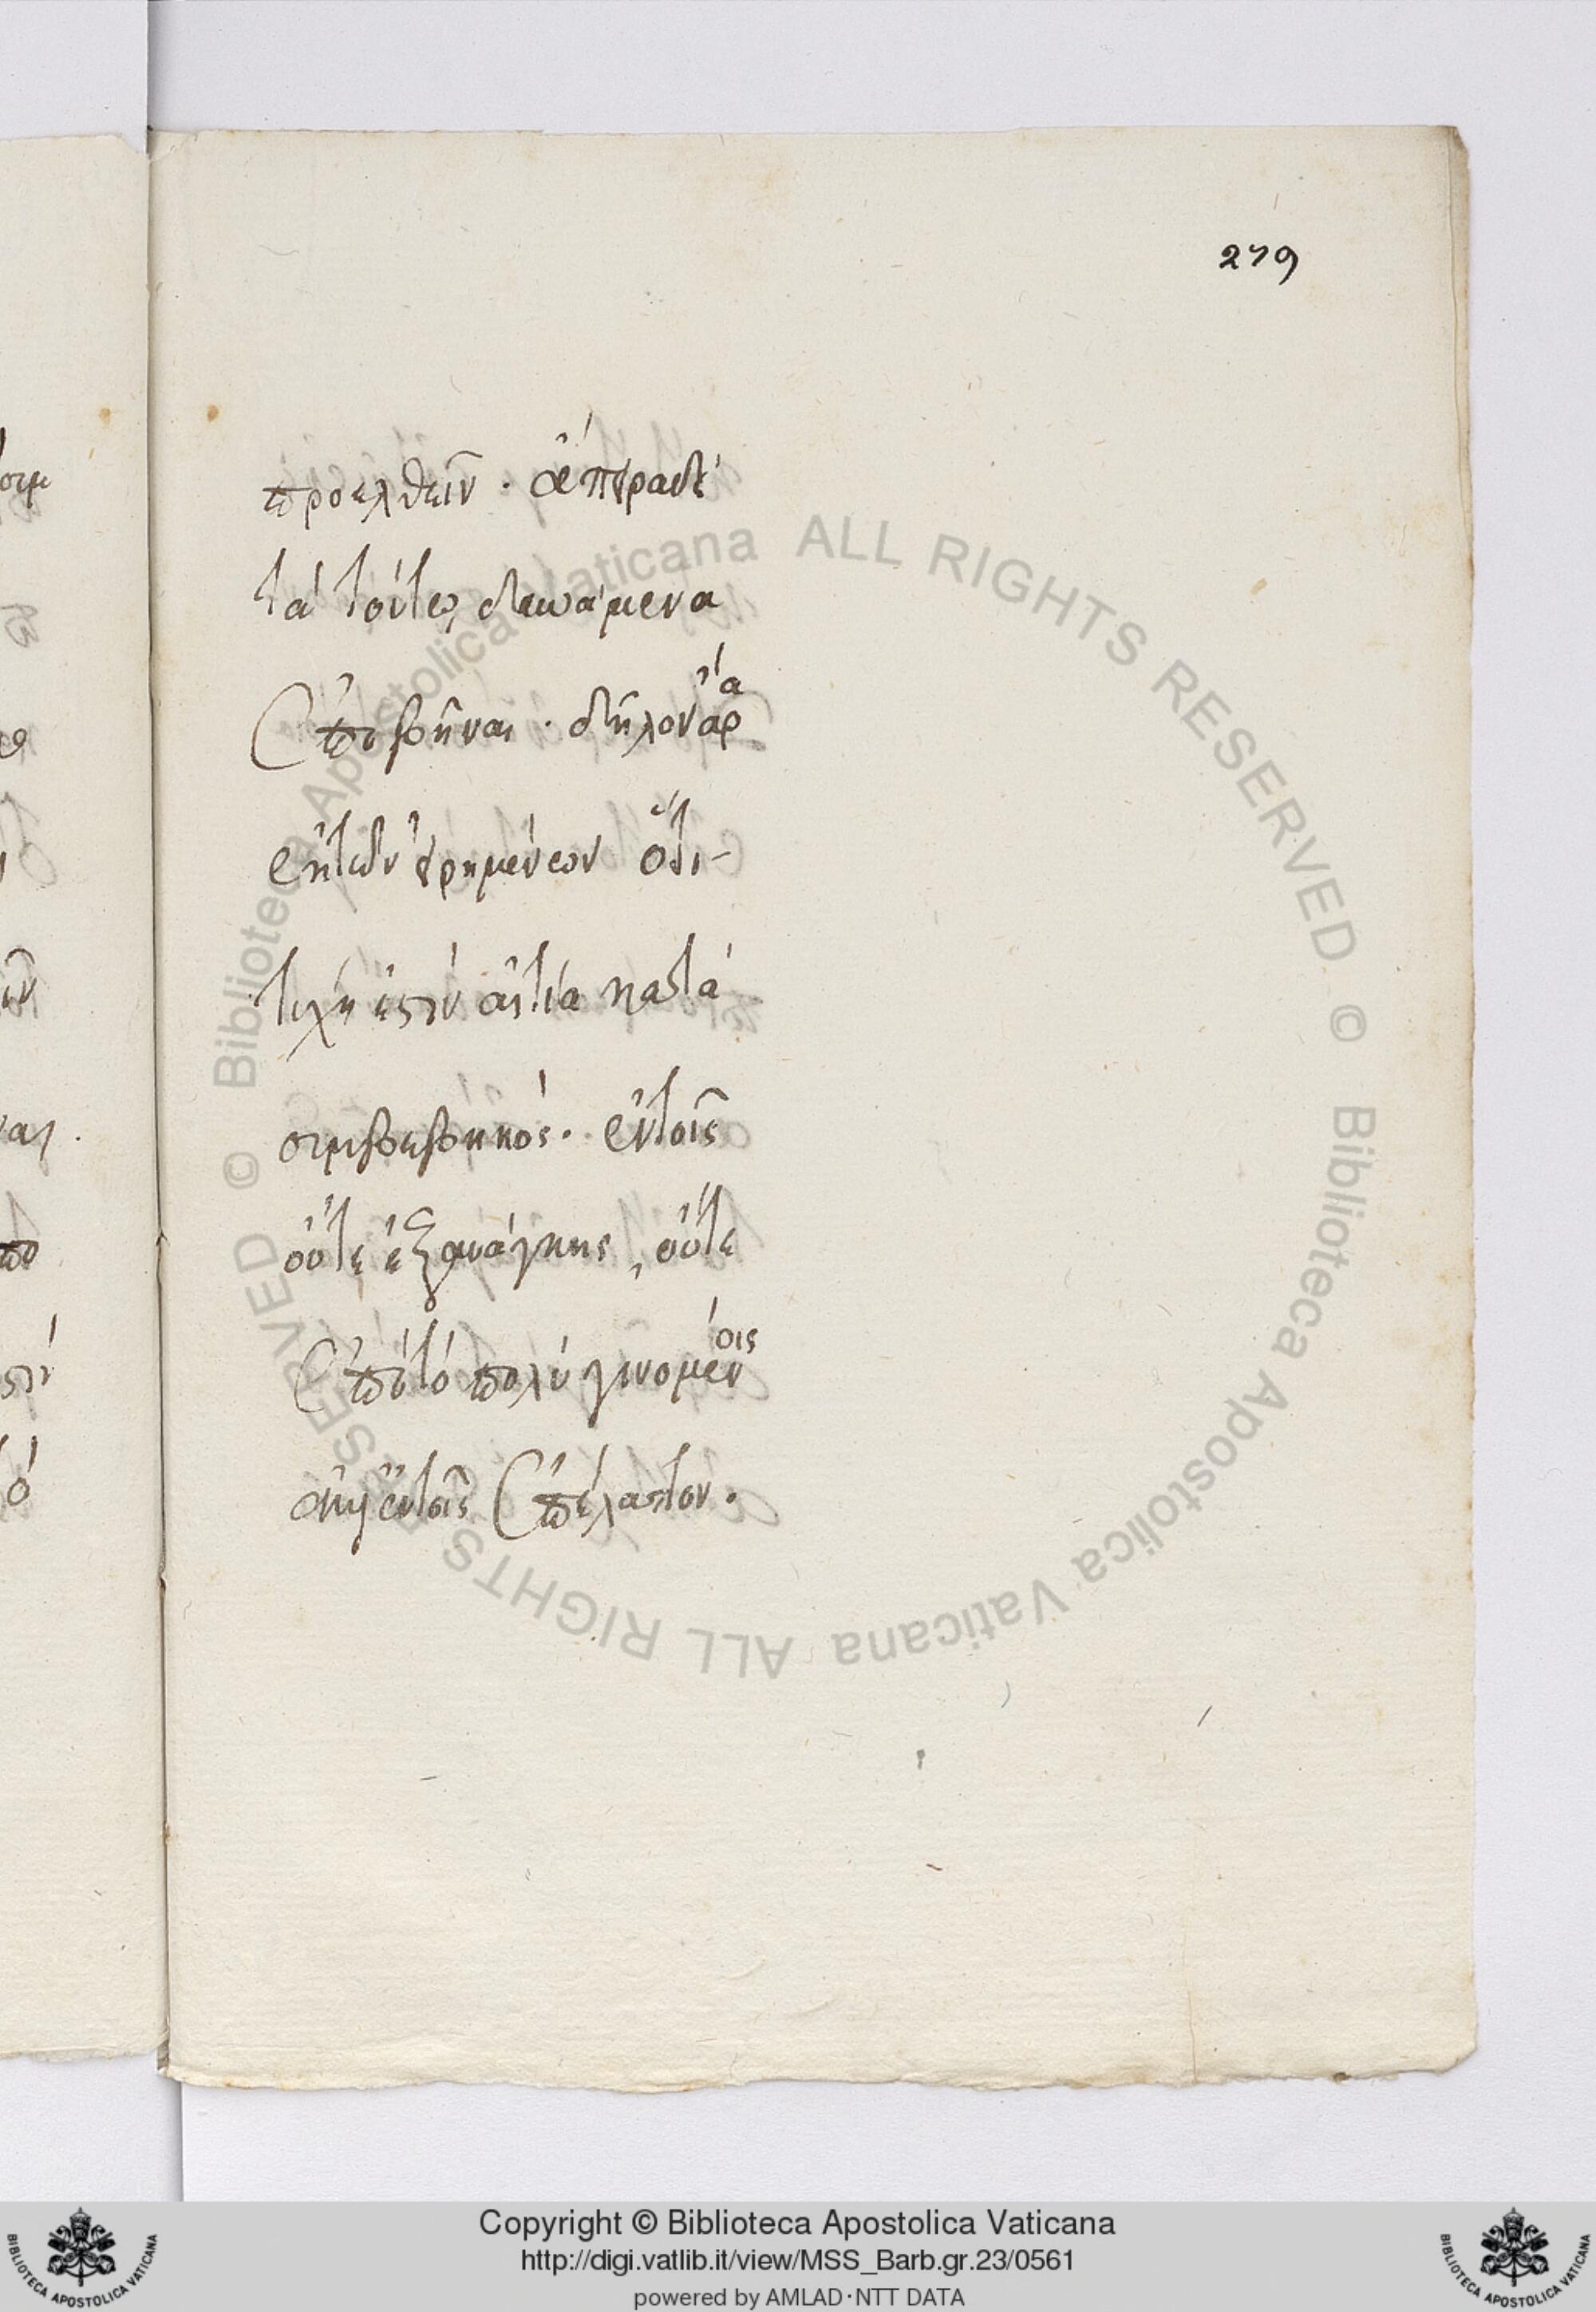 279
προελθεῖν · ἄπειρα δὲ
τὰ τούτω δυνάμενα
ἐπισυμβῆναι · δῆλον ἄρα
ἐκ τῶν εἰρημένων ὅτι
τύχη ἐστὶν αἰτία κατὰ
συμβεβηκός · ἐν τοῖς
οὔτε ἐξ ἀνάγκης, οὔτε
ἐπὶ τὸ πολὺ γινομένοις
ἐν τοῖς ἐπέλαττον ·
© Biblioteca Apostolica Vaticana ALL RIGHTS RESERVED © Biblioteca Apostolica Vaticana ALL RIGHTS RESERVED
Copyright © Biblioteca Apostolica Vaticana
http://digi.vatlib.it/view/MSS_Barb.gr.23/0561
powered by AMLAD·NTT DATA
BIBLIOTECA APOSTOLICA VATICANA
BIBLIOTECA APOSTOLICA VATICANA